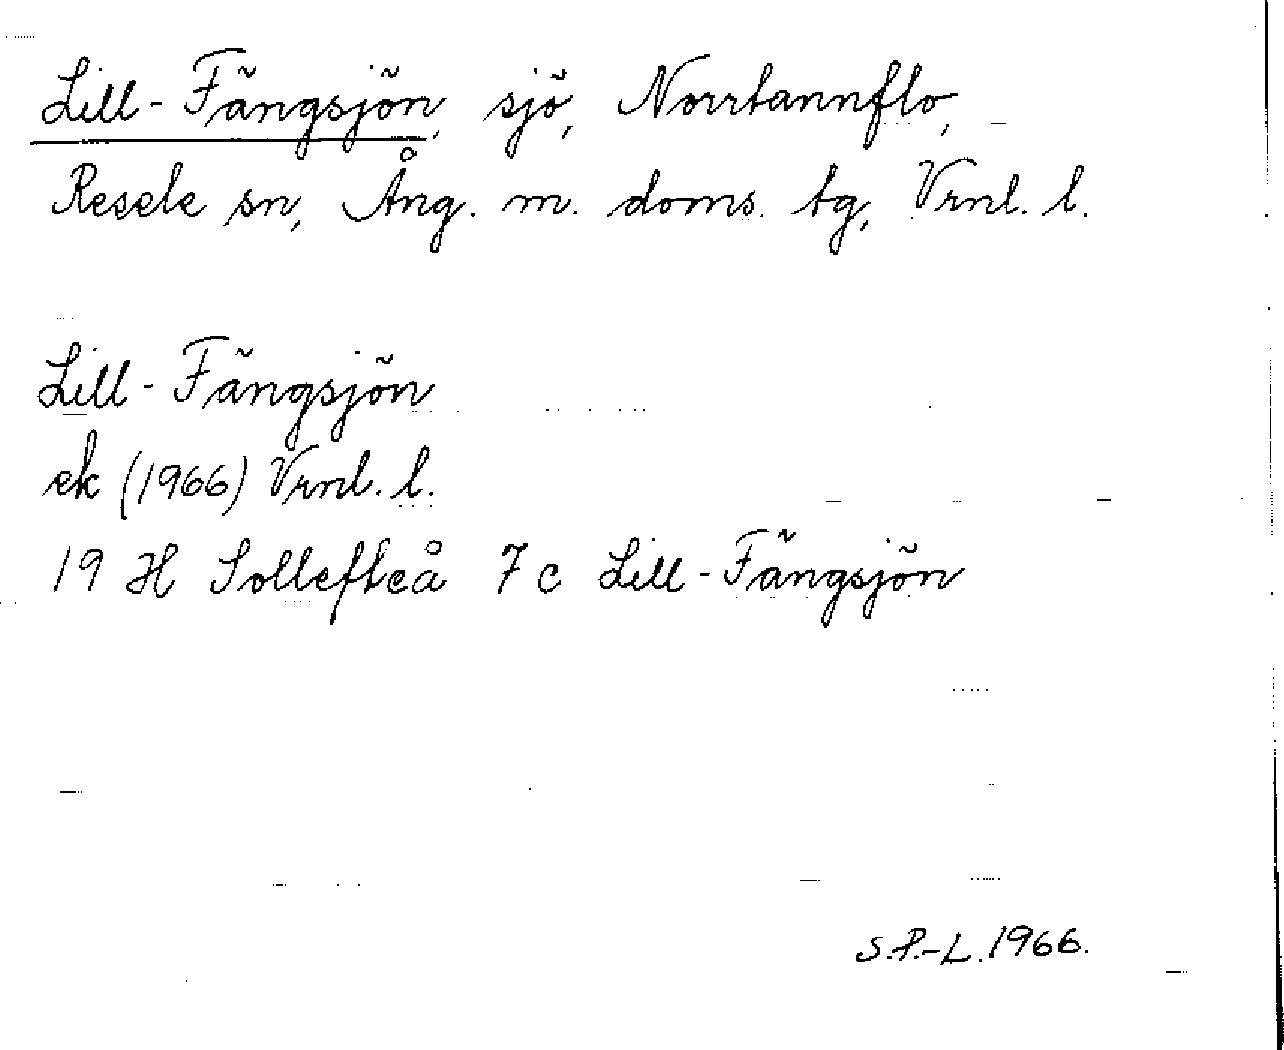 Lill-Fängsjön, sjö, Norrtannflo,
Resele sn, Ång. m. doms. tg, Vrnl. l.
Lill-Fängsjön
ek (1966) Vrnl. l.
19 H Sollefteå 7c Lill-Fängsjön
S.P.-L. 1966.